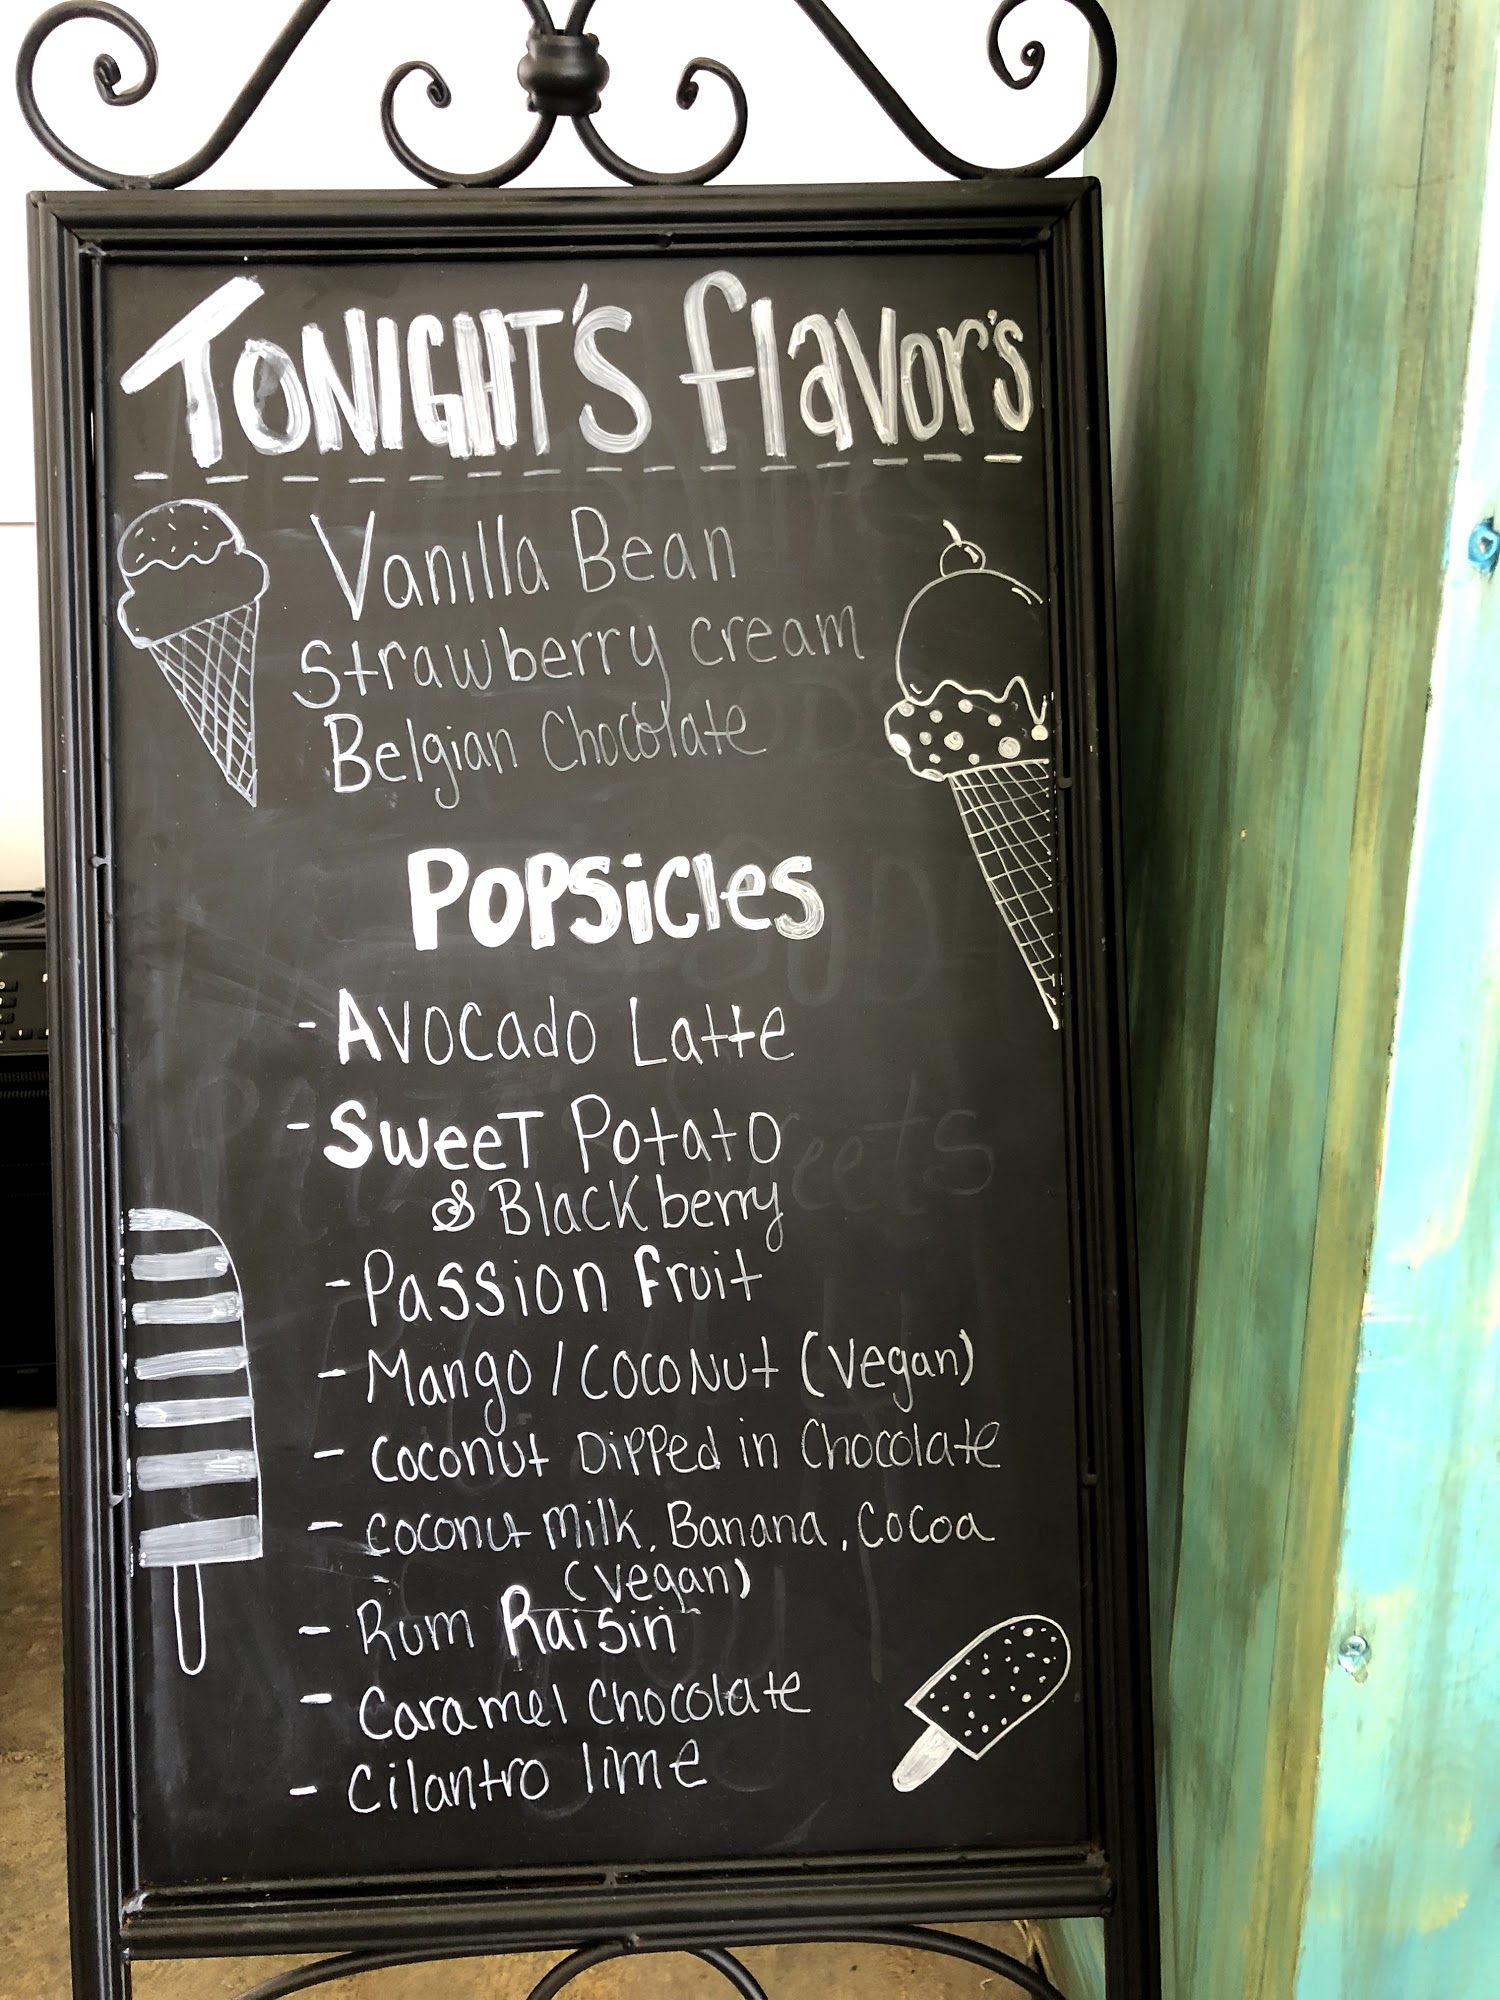 TONIGHT'S flavor's
Vanilla Bean
Strawberry cream
Belgian Chocolate
POPSicles
- Avocado Latte
- Sweet Potato
& Blackberry
- Passion fruit
- Mango / Coconut (vegan)
- Coconut Dipped in Chocolate
- Coconut milk, Banana, Cocoa
(vegan)
- Rum Raisin
- Caramel Chocolate
- Cilantro lime